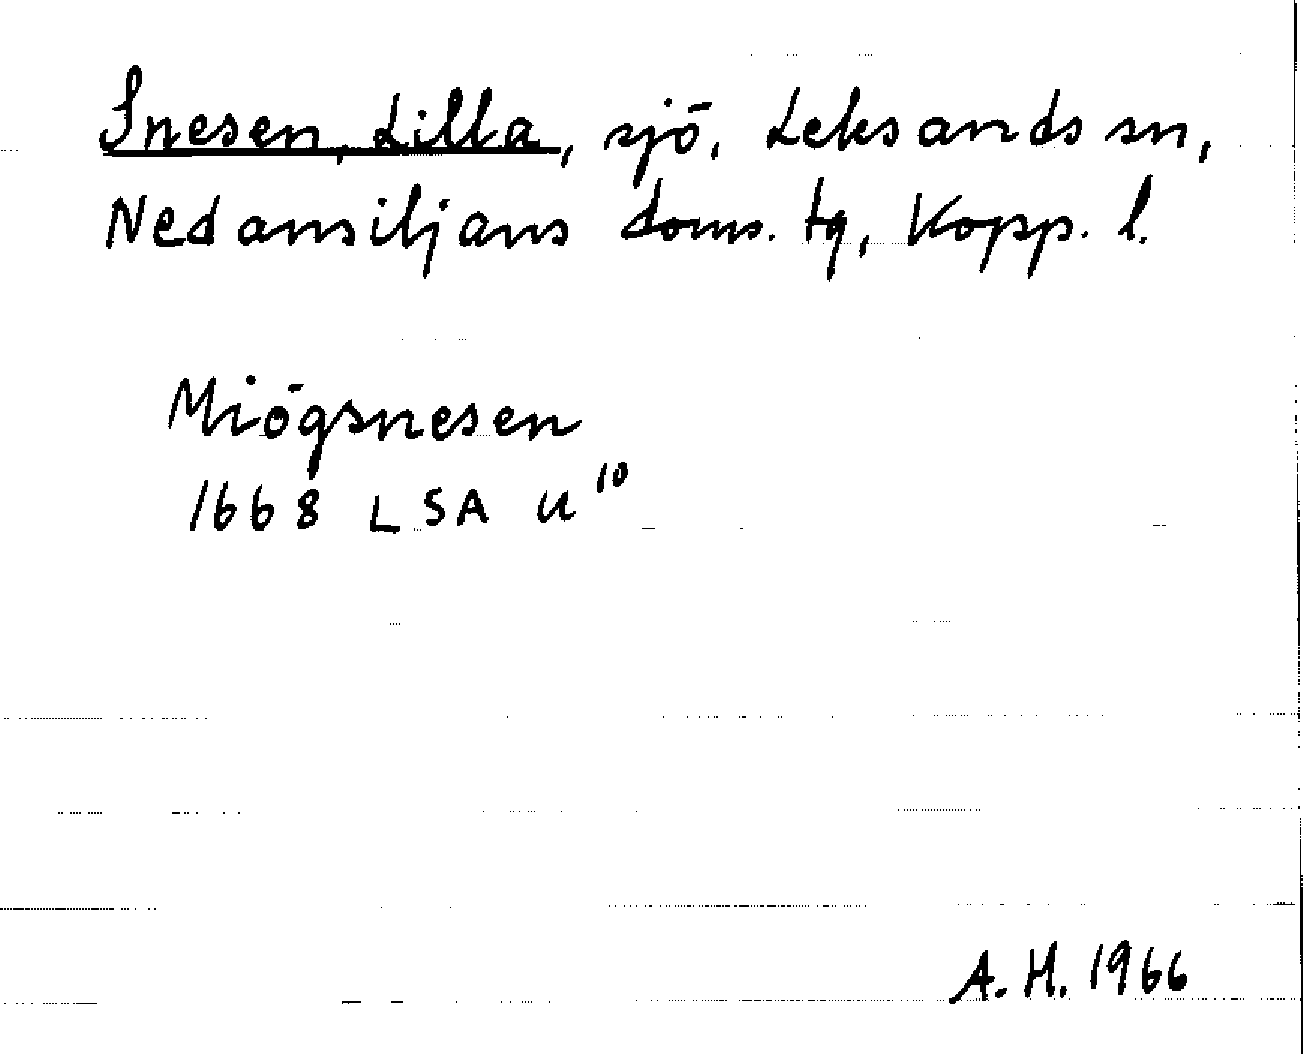 Snesen, Lilla, sjö, Leksands sn,
Nedansiljans doms. tg, Kopp. l.
Miögsnesen
1668 LSA U¹⁰
A. H. 1966